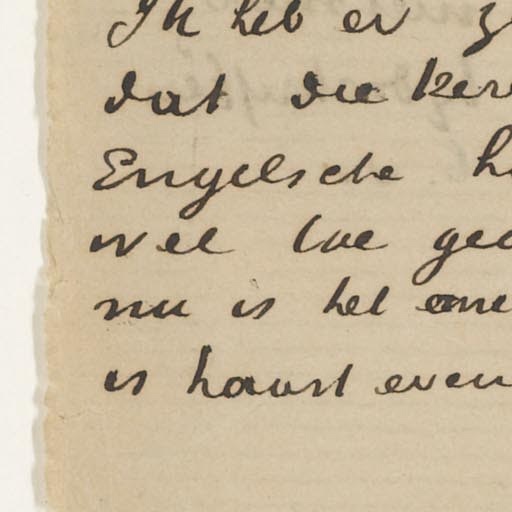 Ik heb er z
dat die ker
Engelsche h
wel toe ged
nu is het
is haast even